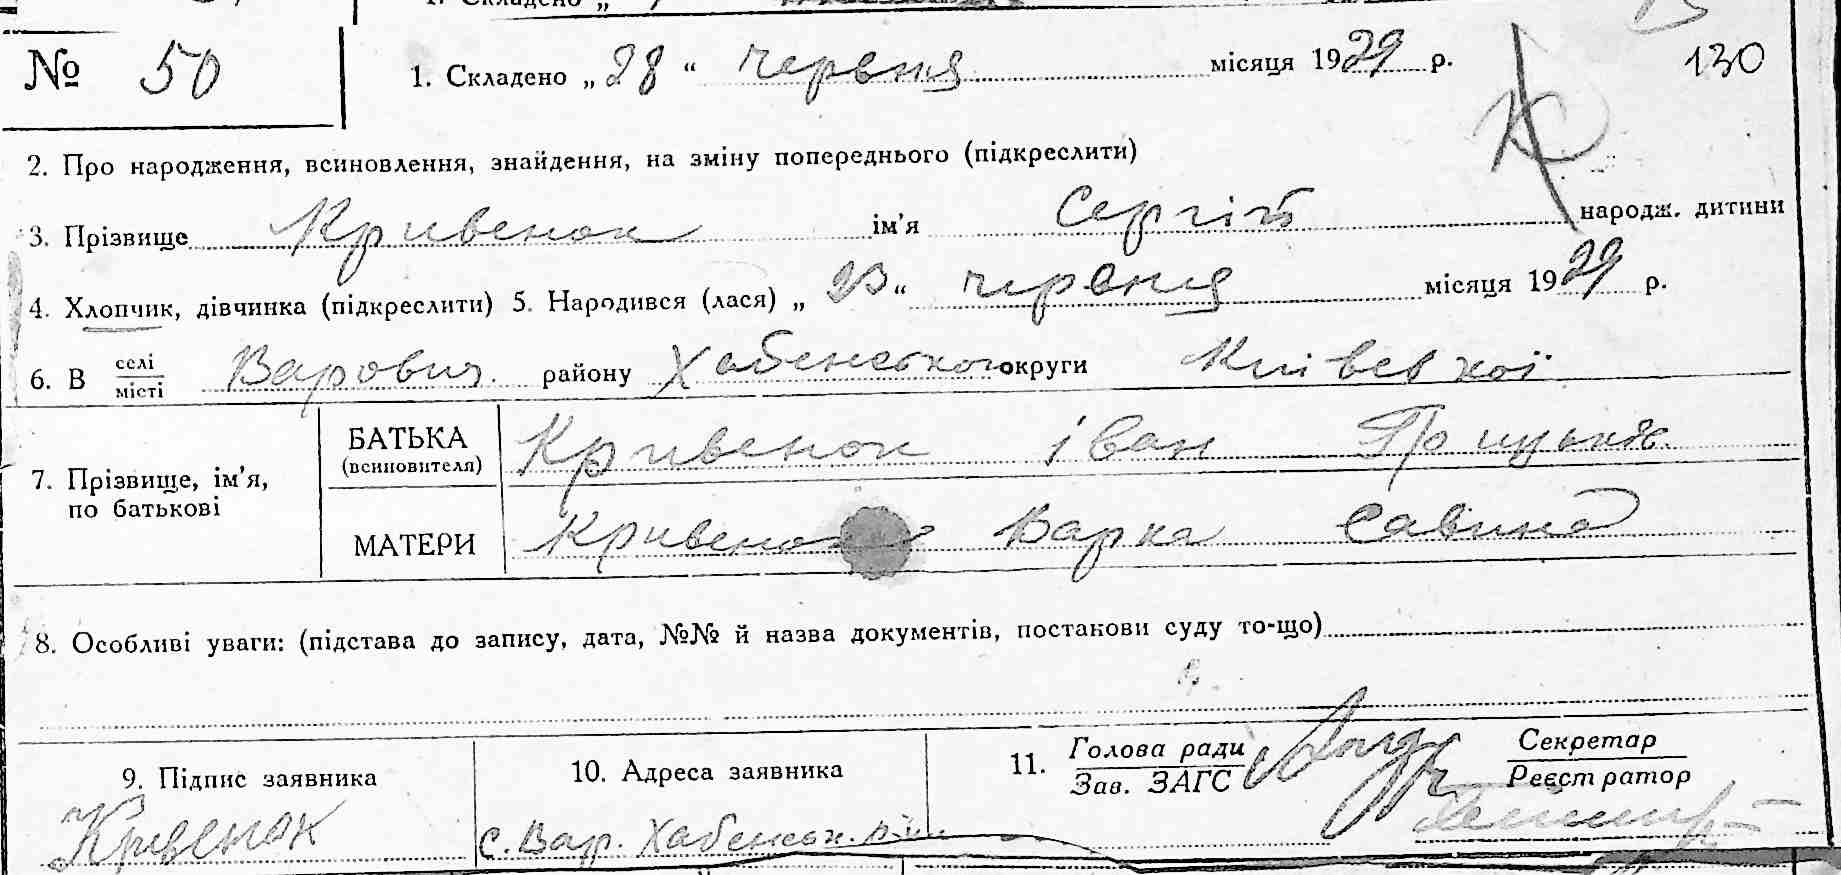 № 50
1. Складено „ 28 “ червня місяця 1929 р. 130
2. Про народження, всиновлення, знайдення, на зміну попереднього (підкреслити)
3. Прізвище Кривенок ім’я Сергій народж. дитини
4. Хлопчик, дівчинка (підкреслити) 5. Народився (лася) „ 23 “ червня місяця 1929 р.
6. В селі/місті Варович. району Хабенського округи Київської
7. Прізвище, ім’я, по батькові
БАТЬКА (всиновителя) Кривенок Іван Грицьків.
МАТЕРИ Кривенок Варка Савина
8. Особливі уваги: (підстава до запису, дата, №№ й назва документів, постанови суду то-що)
9. Підпис заявника
Кривенок
10. Адреса заявника
с. Вар. Хабенськ.
11. Голова ради
Зав. ЗАГС
Секретар
Реєстратор